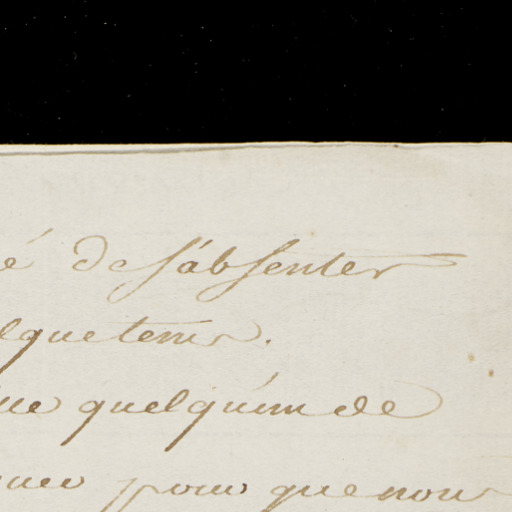 é de s'absenter
lque tems.
ue quelqu'un de
pour que nous